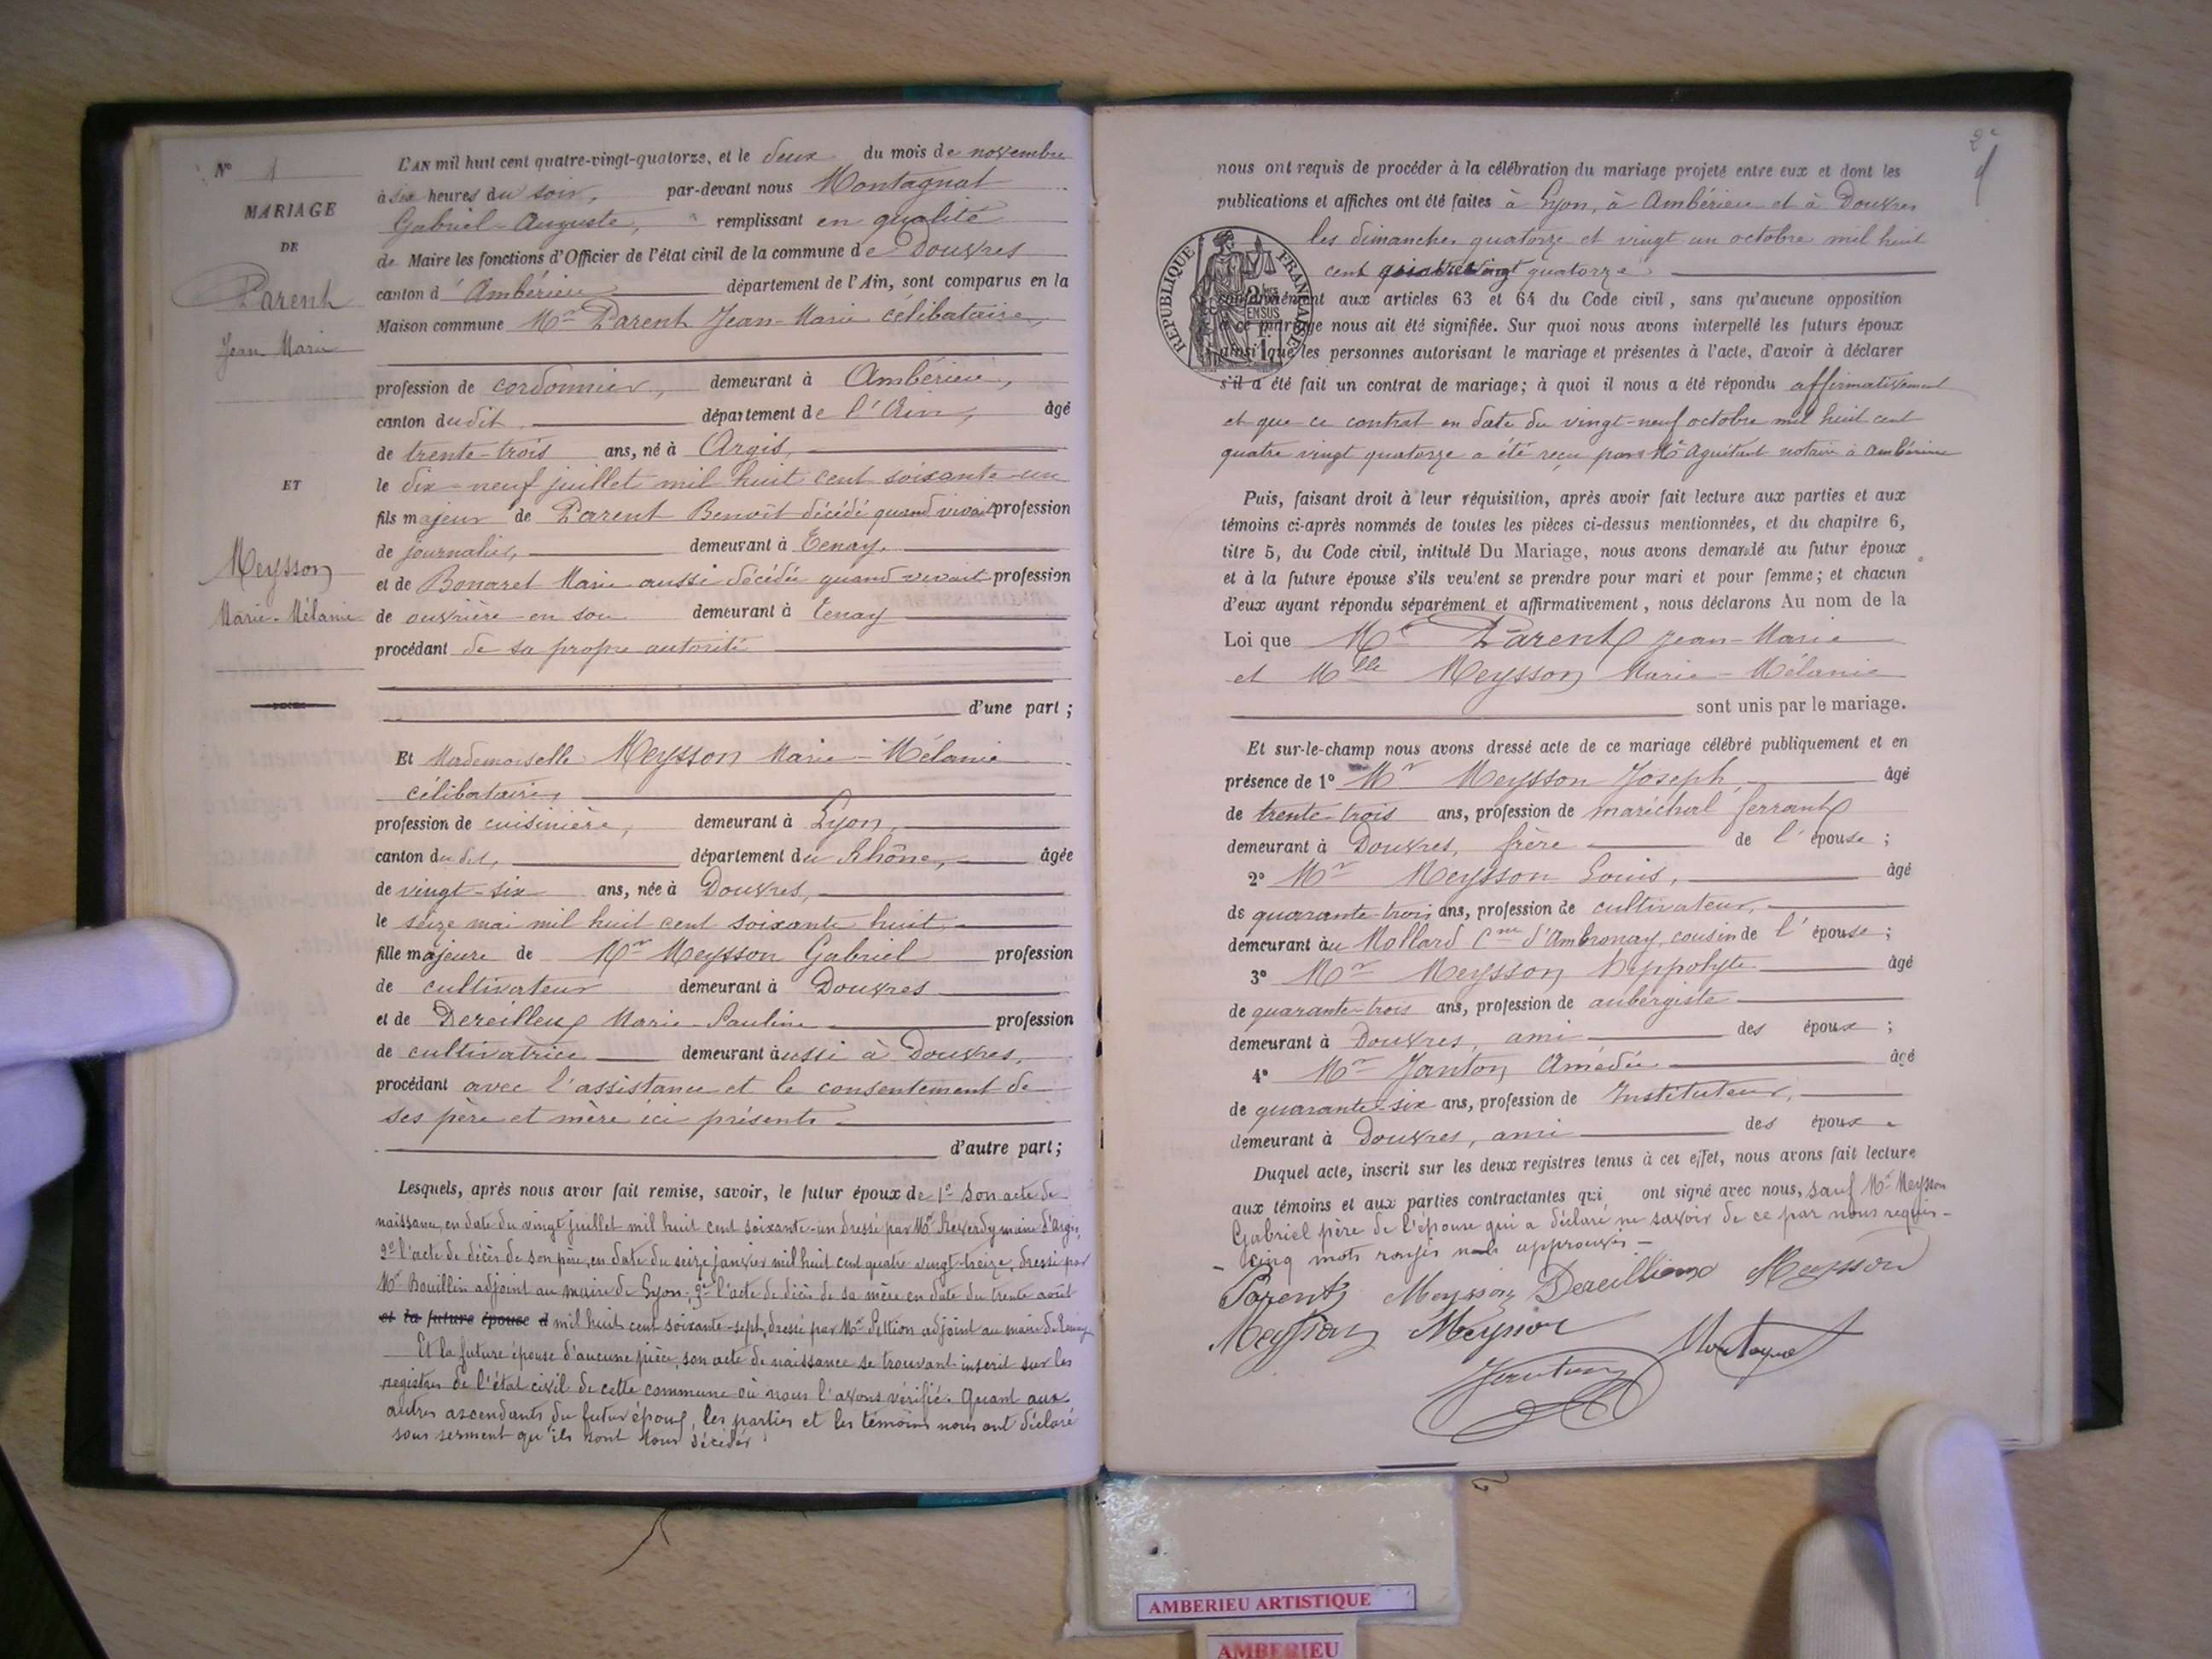 N° 1
MARIAGE
DE
Parent
Jean Marie
ET
Meysson
Marie-Mélanie
L'AN mil huit cent quatre-vingt-quatorze, et le deux du mois de novembre
à six heures du soir, par-devant nous Montagnat
Gabriel-Auguste, remplissant en qualité
de Maire les fonctions d'Officier de l'état civil de la commune de Douvres
canton d'Ambérieu département de l'Ain, sont comparus en la
Maison commune Mr Parent Jean-Marie célibataire,
profession de cordonnier, demeurant à Ambérieu,
canton dudit département de l'Ain, âgé
de trente-trois ans, né à Argis,
le dix-neuf juillet mil huit cent soixante-un
fils majeur de Parent Benoît décédé quand vivait profession
de journalier, demeurant à Tenay,
et de Bonaret Marie aussi décédée quand vivait profession
de ouvrière en soie demeurant à Tenay
procédant de sa propre autorité
d'une part ;
Et Mademoiselle Meysson Marie-Mélanie
célibataire,
profession de cuisinière, demeurant à Lyon,
canton du dit, département du Rhône, âgée
de vingt-six ans, née à Douvres,
le seize mai mil huit cent soixante huit
fille majeure de Mr Meysson Gabriel profession
de cultivateur demeurant à Douvres
et de Dereilleux Marie-Pauline profession
de cultivatrice demeurant aussi à Douvres,
procédant avec l'assistance et le consentement de
ses père et mère ici présents
d'autre part ;
Lesquels, après nous avoir fait remise, savoir, le futur époux de 1° son acte de
naissance, en date du vingt juillet mil huit cent soixante-un dressé par Mr Reverdy maire d'Argis,
2° l'acte de décès de son père, en date du seize janvier mil huit cent quatre vingt-treize, dressé par
Mr Bouillin adjoint au maire de Lyon, 3° l'acte de décès de sa mère en date du trente août
et la future épouse d mil huit cent soixante-sept, dressé par Mr adjoint au maire de Tenay
Et la future épouse d'aucune pièce, son acte de naissance se trouvant inscrit sur les
registres de l'état civil de cette commune où nous l'avons vérifié. Quant aux
autres ascendants du futur époux, les parties et les témoins nous ont déclaré
sous serment qu'ils sont tous décédés
2e
nous ont requis de procéder à la célébration du mariage projeté entre eux et dont les
publications et affiches ont été faites à Lyon, à Ambérieu et à Douvres
les dimanches quatorze et vingt un octobre mil huit
cent quatre vingt quatorze
RÉPUBLIQUE FRANÇAISE
conformément aux articles 63 et 64 du Code civil, sans qu'aucune opposition
à ce mariage nous ait été signifiée. Sur quoi nous avons interpellé les futurs époux
ainsi que les personnes autorisant le mariage et présentes à l'acte, d'avoir à déclarer
s'il a été fait un contrat de mariage; à quoi il nous a été répondu affirmativement
et que ce contrat en date du vingt-neuf octobre mil huit cent
quatre vingt quatorze a été reçu par Me Aguétant notaire à Ambérieu
Puis, faisant droit à leur réquisition, après avoir fait lecture aux parties et aux
témoins ci-après nommés de toutes les pièces ci-dessus mentionnées, et du chapitre 6,
titre 5, du Code civil, intitulé Du Mariage, nous avons demandé au futur époux
et à la future épouse s'ils veulent se prendre pour mari et pour femme; et chacun
d'eux ayant répondu séparément et affirmativement, nous déclarons Au nom de la
Loi que Mr Parent Jean-Marie
et Mlle Meysson Marie-Mélanie
sont unis par le mariage.
Et sur-le-champ nous avons dressé acte de ce mariage célébré publiquement et en
présence de 1° Mr Meysson Joseph, âgé
de trente-trois ans, profession de maréchal ferrant
demeurant à Douvres, frère de l'épouse ;
2° Mr Meysson Louis, âgé
de quarante-trois ans, profession de cultivateur,
demeurant au Mollard Cne d'Ambronay, cousin de l'épouse ;
3° Mr Meysson Hippolyte âgé
de quarante-trois ans, profession de aubergiste
demeurant à Douvres, ami des époux ;
4° Mr Janton Amédée âgé
de quarante-six ans, profession de Instituteur,
demeurant à Douvres, ami des époux
Duquel acte, inscrit sur les deux registres tenus à cet effet, nous avons fait lecture
aux témoins et aux parties contractantes qui ont signé avec nous, sauf Mr Meysson
Gabriel père de l'épouse qui a déclaré ne savoir de ce par nous requis -
- cinq mots rayés nuls approuvés -
Parent Meysson Dereillieux Meysson
Meysson Meysson
Janton Montagnat
AMBERIEU ARTISTIQUE
AMBERIEU